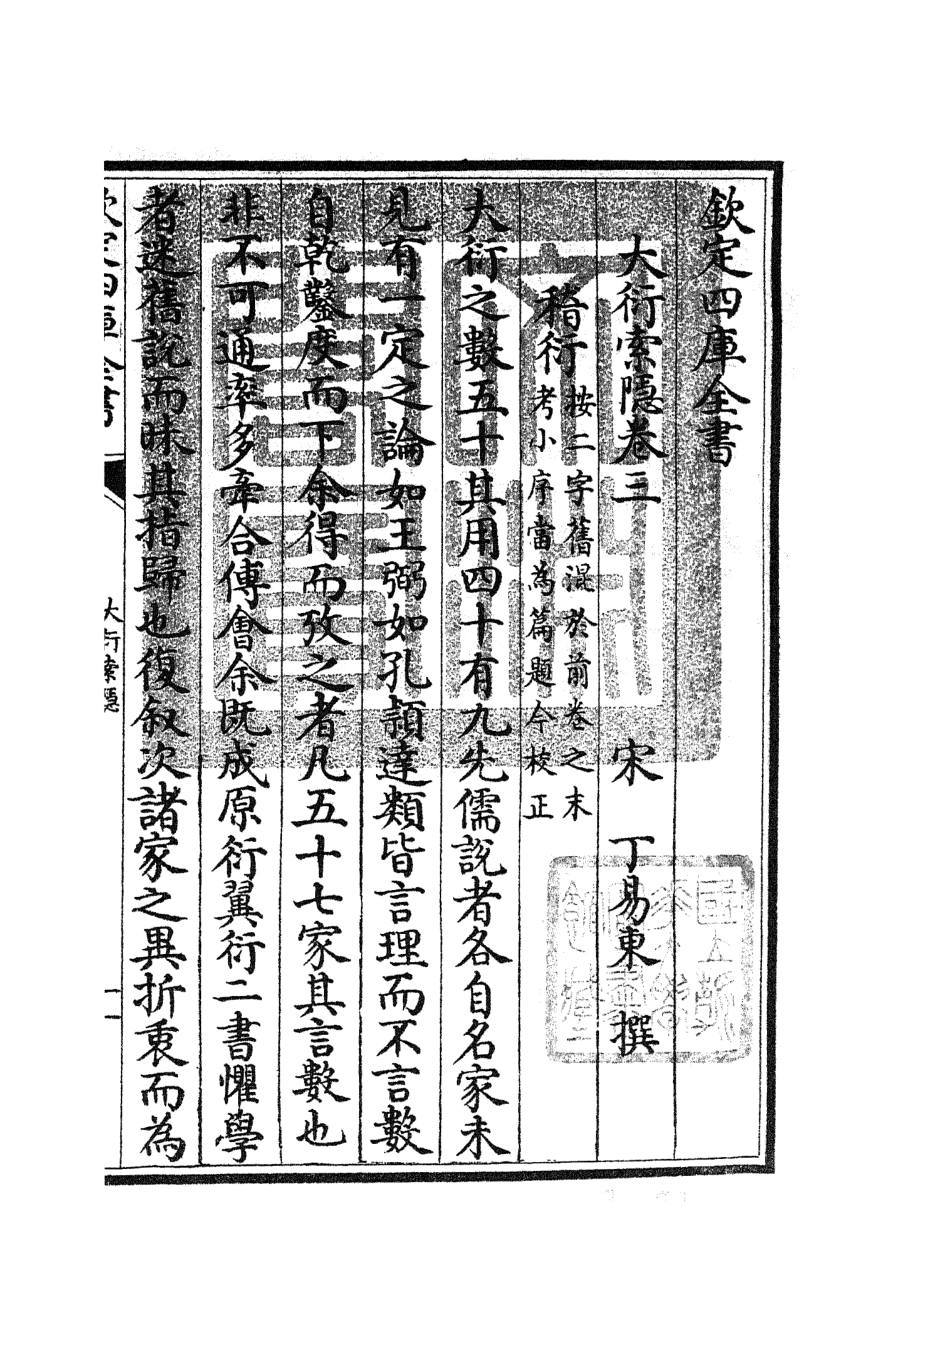 欽定四庫全書
大衍索隱卷三 宋 丁易東 撰
稽衍 按二字舊混於前卷之末
考小序當為篇題今校正
大衍之數五十其用四十有九先儒說者各自名家未
見有一定之論如王弼如孔頴達類皆言理而不言數
自乾鑿度而下余得而攷之者凡五十七家其言數也
非不可通率多牽合傅會余既成原衍翼衍二書懼學
者迷舊說而昧其指歸也復叙次諸家之異折衷而為
欽定四庫全書
大衍索隱